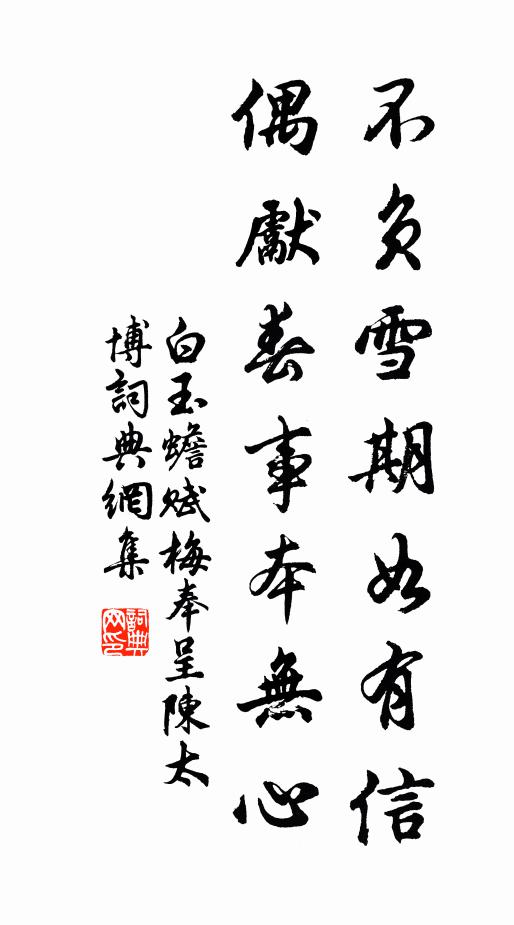 不負雪期如有信
偶獻春事本無心
白玉蟾賦梅奉呈陳太
博詞典網集
詞典
网印